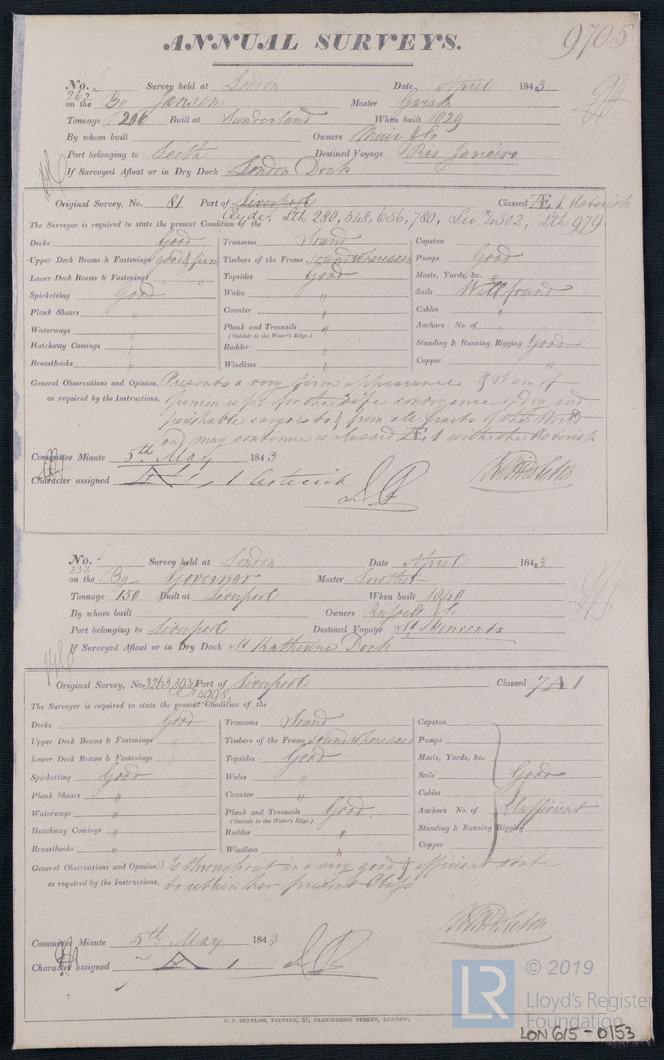 ANNUAL SURVEYS.
9705
No. 262 Survey held at London Date April 1843
on the Bq Janson Master
Tonnage 206 Built at Sunderland When built 1829
By whom built Owners Muir & Co
Port belonging to Leith Destined Voyage Rio Janeiro
If Surveyed Afloat or in Dry Dock London Dock
Original Survey, No. 81 Port of Liverpool Classed Æ 1 Asterisk
Clyde, Lth 280, 548, 656, 780, Liv. 4502, Lth 979
The Surveyor is required to state the present Condition of the
Decks Good Transoms Sound Capstan
Upper Deck Beams & Fastenings good & firm Timbers of the Frame Sound where seen Pumps Good
Lower Deck Beams & Fastenings " Topsides Good Masts, Yards, &c. "
Spirketting Good Wales " Sails Well found
Plank Shears " Counter " Cables "
Waterways " Plank and Treenails " Anchors No. of "
(Outside to the Water's Edge.)
Hatchway Comings " Rudder " Standing & Running Rigging Good
Breasthooks " Windlass " Copper "
General Observations and Opinion, Presents a very firm appearance & I am of
as required by the Instructions, opinion is fit for the safe conveyance of dry and
perishable cargoes to & from all parts of the World
and may continue as classed Æ 1 with the Asterisk
Committee Minute 5th May 1843
Character assigned Æ 1 Asterisk
No. 333 Survey held at London Date April 1843
on the Bg Governor Master
Tonnage 150 Built at Liverpool When built 1840
By whom built Owners Russell & Co
Port belonging to Liverpool Destined Voyage St Vincents
If Surveyed Afloat or in Dry Dock St Katherine Dock
Original Survey, No. Port of Liverpool Classed 7 A 1
4998
The Surveyor is required to state the present Condition of the
Decks Good Transoms Sound Capstan
Upper Deck Beams & Fastenings " Timbers of the Frame Sound where seen Pumps
Lower Deck Beams & Fastenings " Topsides Good Masts, Yards, &c.
Spirketting Good Wales " Sails Good
Plank Shears " Counter " Cables &
Waterways " Plank and Treenails Good Anchors No. of Sufficient
(Outside to the Water's Edge.)
Hatchway Comings " Rudder " Standing & Running Rigging
Breasthooks " Windlass " Copper
General Observations and Opinion, Is throughout in a very good & efficient state
as required by the Instructions, to retain her present Class
Committee Minute 5th May 1843
Character assigned 7 A 1
C. F. SEYFANG, PRINTER, 57, FARRINGDON STREET, LONDON.
LR © 2019
Lloyd's Register
Foundation
LON 615-0153